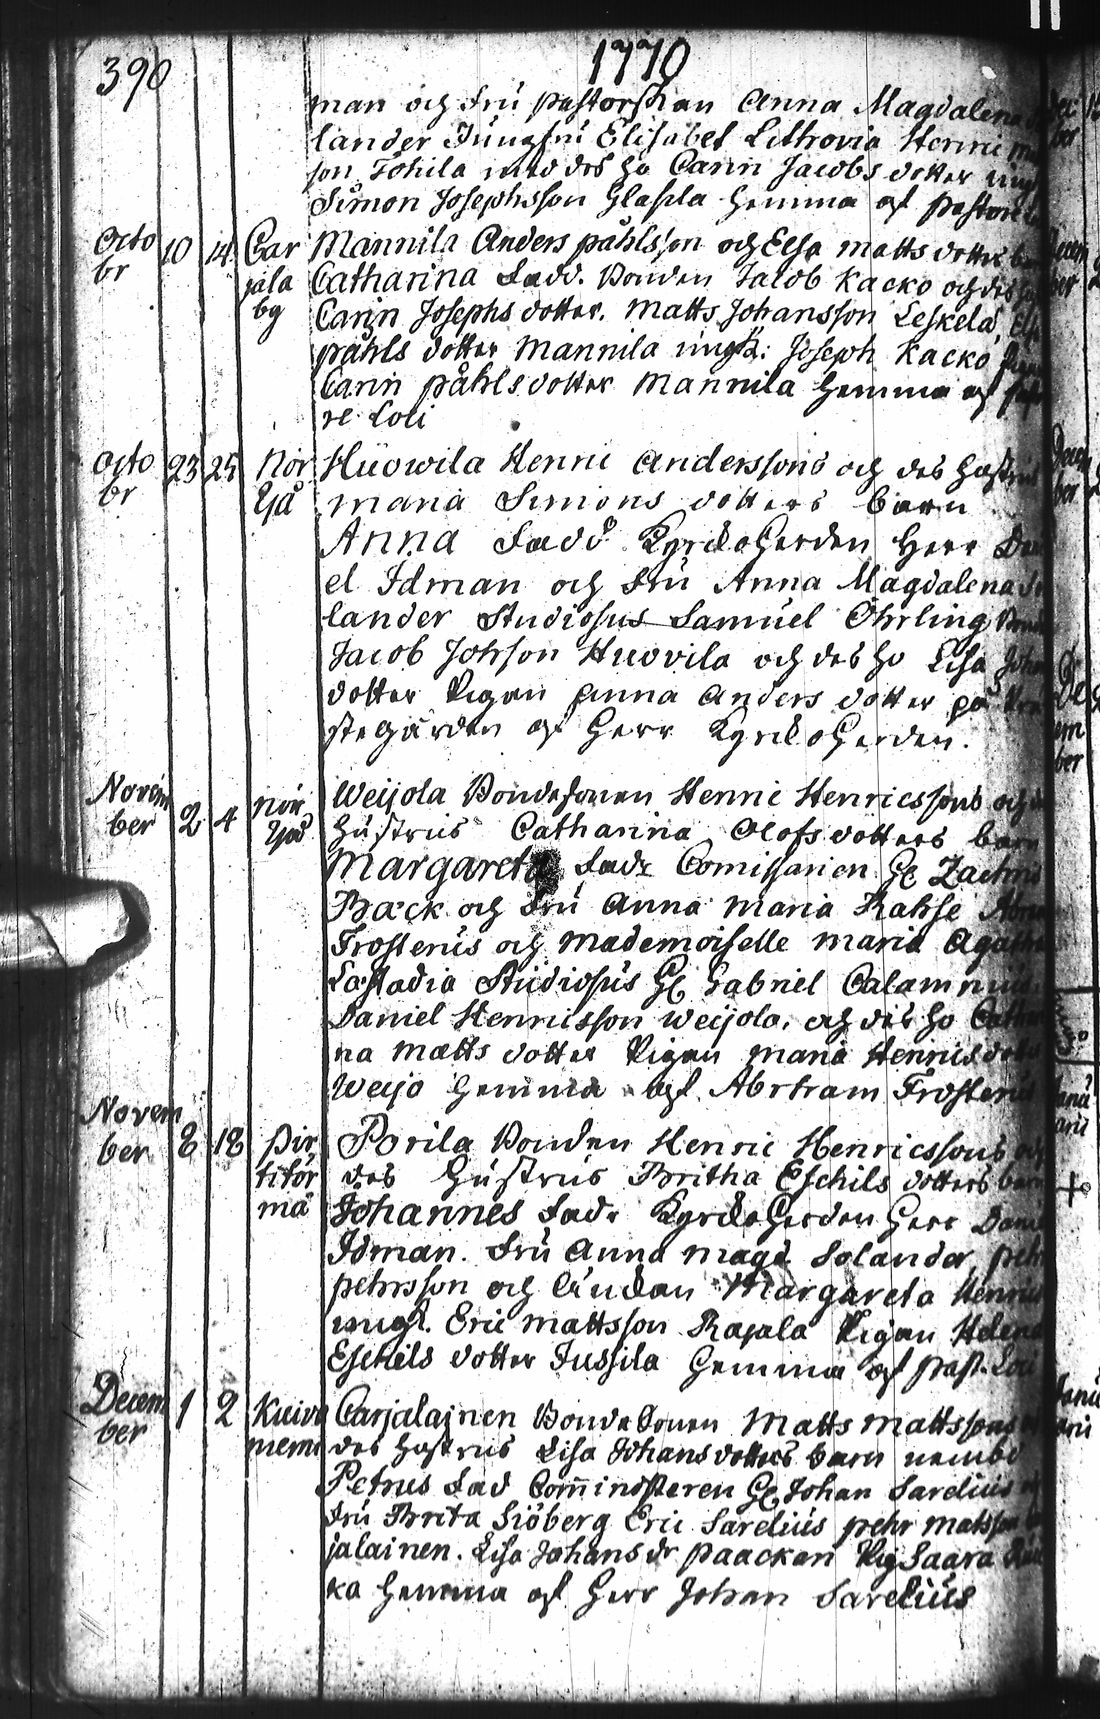 390
1770
man och Fru pastorskan Anna Magdalena
lander Jungfru Elisabet Lithovia Henric
son Tohila med des ho Carin Jacobs dotter ungk
Simon Josephsson Glasela hemma af pastore
Octo 10 14 Car Mannila Anders påhlsson och Elsa matts dotters
br jala Catharina Fadd. Bonden Jacob Kacko och des
by Carin Josephs dotter. Matts Johansson Leskelä,
påhls dotter Mannila ungk: Joseph Kacko
Carin påhls dotter Mannila hemma af
re Loci
Octo 23 25 Nor Huowila Henric Anderssons och des hustrus
br Yå maria Simons dotters barn
Anna Fadd KyrckoHerden Herr Dani
el Idman och Fru Anna Magdalena
lander Studiosus Samuel Öhrling
Jacob Johsson Huovila och des ho Lisa
dotter Pigan Anna Anders dotter på
stegården af Herr KyrckoHerden.
Novem 2 4 Nör Weijola Bondesonen Henric Henricssons och
ber Yså hustrus Catharina Olofs dotters barn
Margareta Fadr Comissarien Hr Zachris
Bæck och Fru Anna Maria Rahse
Frosterus och Mademoiselle Maria
Læstadia Studiosus Hr Gabriel Calamnius
Daniel Henricsson Weijola, och des ho
na Matts dotter Pigan Maria Henrics
Weijo hemma af. Abrham Frosterus
Novem 8 18 pir Porila Bonden Henric Henricssons
ber titör des hustrus Britha Eschils dotters barn
ma Johannes Fadr KyrckoHerden Herr
Idman. Fru Anna Magd. Solander,
pehrsson och Enckan Margareta
ungk. Eric Mattsson Rajala Pigan Helena
Eschils dotter Jussila hemma af Past. Loci
Decem 1 2 Kuiva Carjalainen Bondesonen Matts Mattssons
ber niemi des hustrus Lisa Johans dotters barn
Petrus Fad Comministeren Hr Johan Sarelius
Fru Brita Siöberg Eric Sarelius pehr Matsson
jalainen. Lisa Johans dr paackari Pig Saara
ka hemma af Herr Johan Sarelius